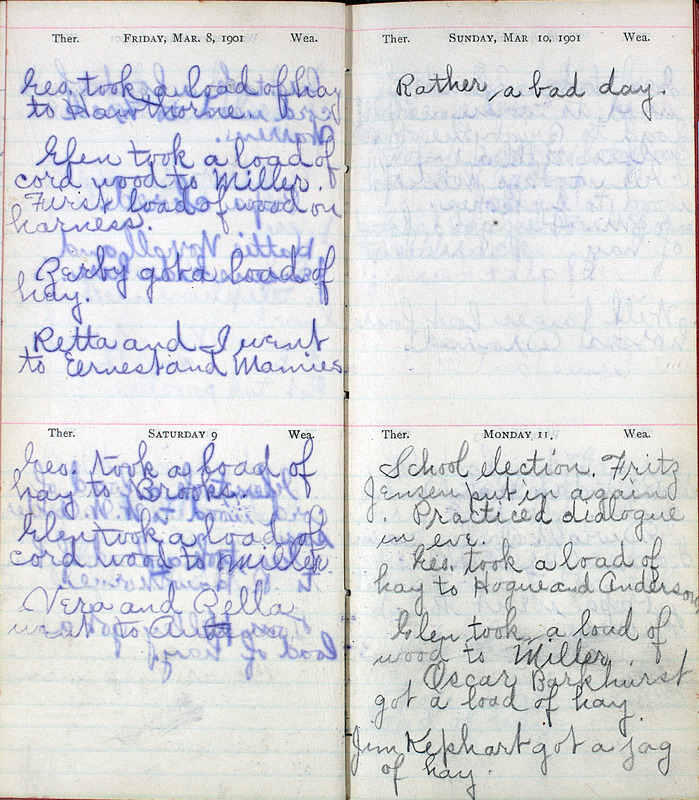 Ther. FRIDAY, MAR. 8, 1901 Wea.
Geo. took a load of hay
to Hawthorne.
Glen took a load of
cord wood to Miller.
First load of wood on
harness.
Perby got a load of
hay.
Retta and I went
to Eernest and Mamies
Ther. SATURDAY 9 Wea.
Geo. took a load of
hay to Brooks.
Glen took a load of
cord wood to Miller.
Vera and Rella
went to
Ther. SUNDAY, MAR 10, 1901 Wea.
Rather, a bad day.
Ther. MONDAY 11. Wea.
School election. Fritz
Jensen put in again
. Practiced dialogue
in eve.
Geo. took a load of
hay to Hogue and Anderson
Glen took a load of
wood to Miller.
Oscar Barkhurst
got a load of hay.
Jim Kephart got a jag
of hay.